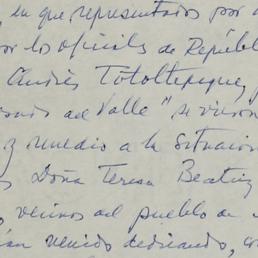 , en que representados por
por los oficiales de Repúbl
Andrés Totoltepeque,
del Valle" se
y remedio a la situacion
Doña Teresa Beatriz
, vecinos del pueblo de
venido dedicando, co